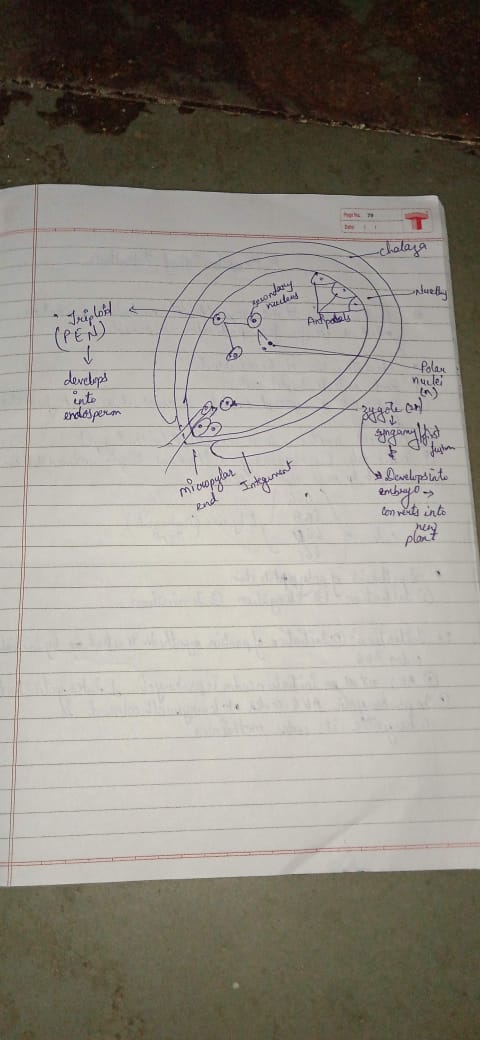 Page No. 79
Date: / /
chalaza
secondary
nucleus
Antipodals
Triploid
(PEN)
develops
into
endosperm
Polar
nuclei
(n)
zygote (2n)
syngamy/first
Develops into
embryo →
converts into
new
plant
micropylar
end
Integument